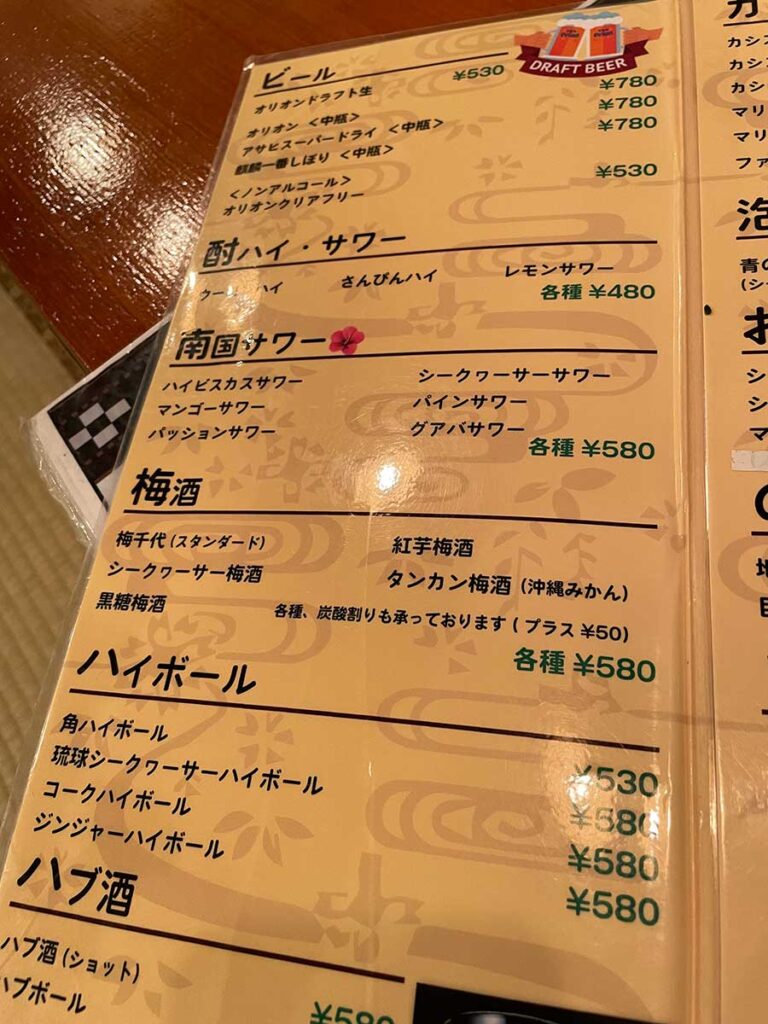 DRAFT BEER
ビール
オリオンドラフト生 ¥530
オリオン <中瓶> ¥780
アサヒスーパードライ <中瓶> ¥780
麒麟一番しぼり <中瓶> ¥780
<ノンアルコール>
オリオンクリアフリー ¥530
酎ハイ・サワー
ハイ さんぴんハイ レモンサワー
各種 ¥480
南国サワー
ハイビスカスサワー シークヮーサーサワー
マンゴーサワー パインサワー
パッションサワー グアバサワー
各種 ¥580
梅酒
梅千代 (スタンダード) 紅芋梅酒
シークヮーサー梅酒 タンカン梅酒 (沖縄みかん)
黒糖梅酒
各種、炭酸割りも承っております ( プラス ¥50)
各種 ¥580
ハイボール
角ハイボール ¥530
琉球シークヮーサーハイボール ¥580
コークハイボール ¥580
ジンジャーハイボール ¥580
ハブ酒
ハブ酒 (ショット)
ハブボール
¥580
カシ
カシ
カシ
マリ
マリ
ファ
泡
青の
(シー
お
シー
シー
マ